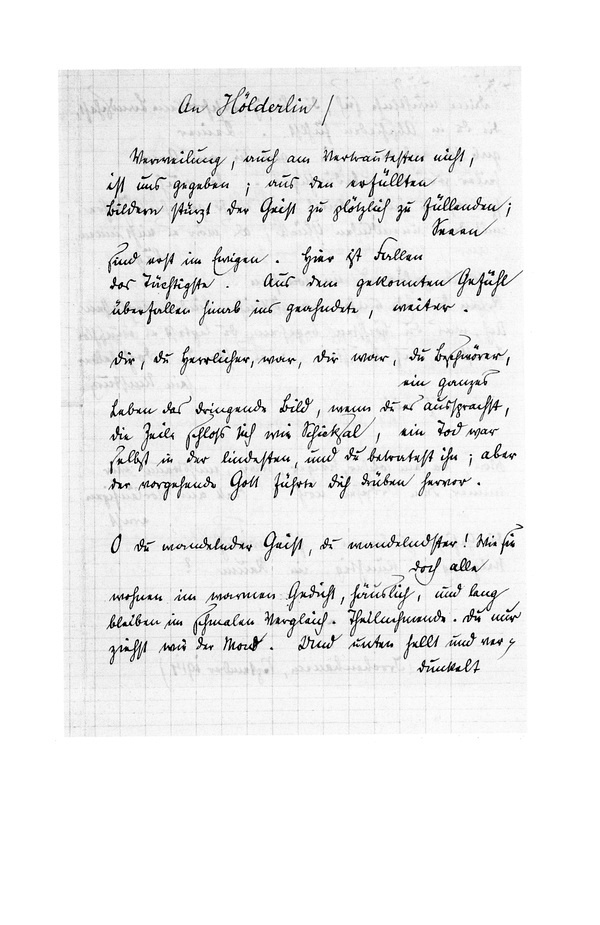 An Hölderlin /
Verweilung, auch am Vertrautesten nicht,
ist uns gegeben; aus den erfüllten
Bildern stürzt der Geist zu plötzlich zu füllenden;
Seeen
sind erst im Ewigen. Hier ist Fallen
das Tüchtigste. Aus dem gekonnten Gefühl
überfallen hinab ins geahndete, weiter.
Dir, du Herrlicher, war, dir war, du Beschwörer,
ein ganzes
Leben das dringende Bild, wenn du es aussprachst,
die Zeile schloss sich wie Schicksal, ein Tod war
selbst in der lindesten, und du betratest ihn; aber
der vorgehende Gott führte dich drüben hervor.
O du wandelnder Geist, du wandelndster! Wie sie
doch alle
wohnen im warmen Gedicht, häuslich, und lang
bleiben im schmalen Vergleich. Theilnehmende. Du nur
ziehst wie der Mond. Und unten hellt und ver-
dunkelt